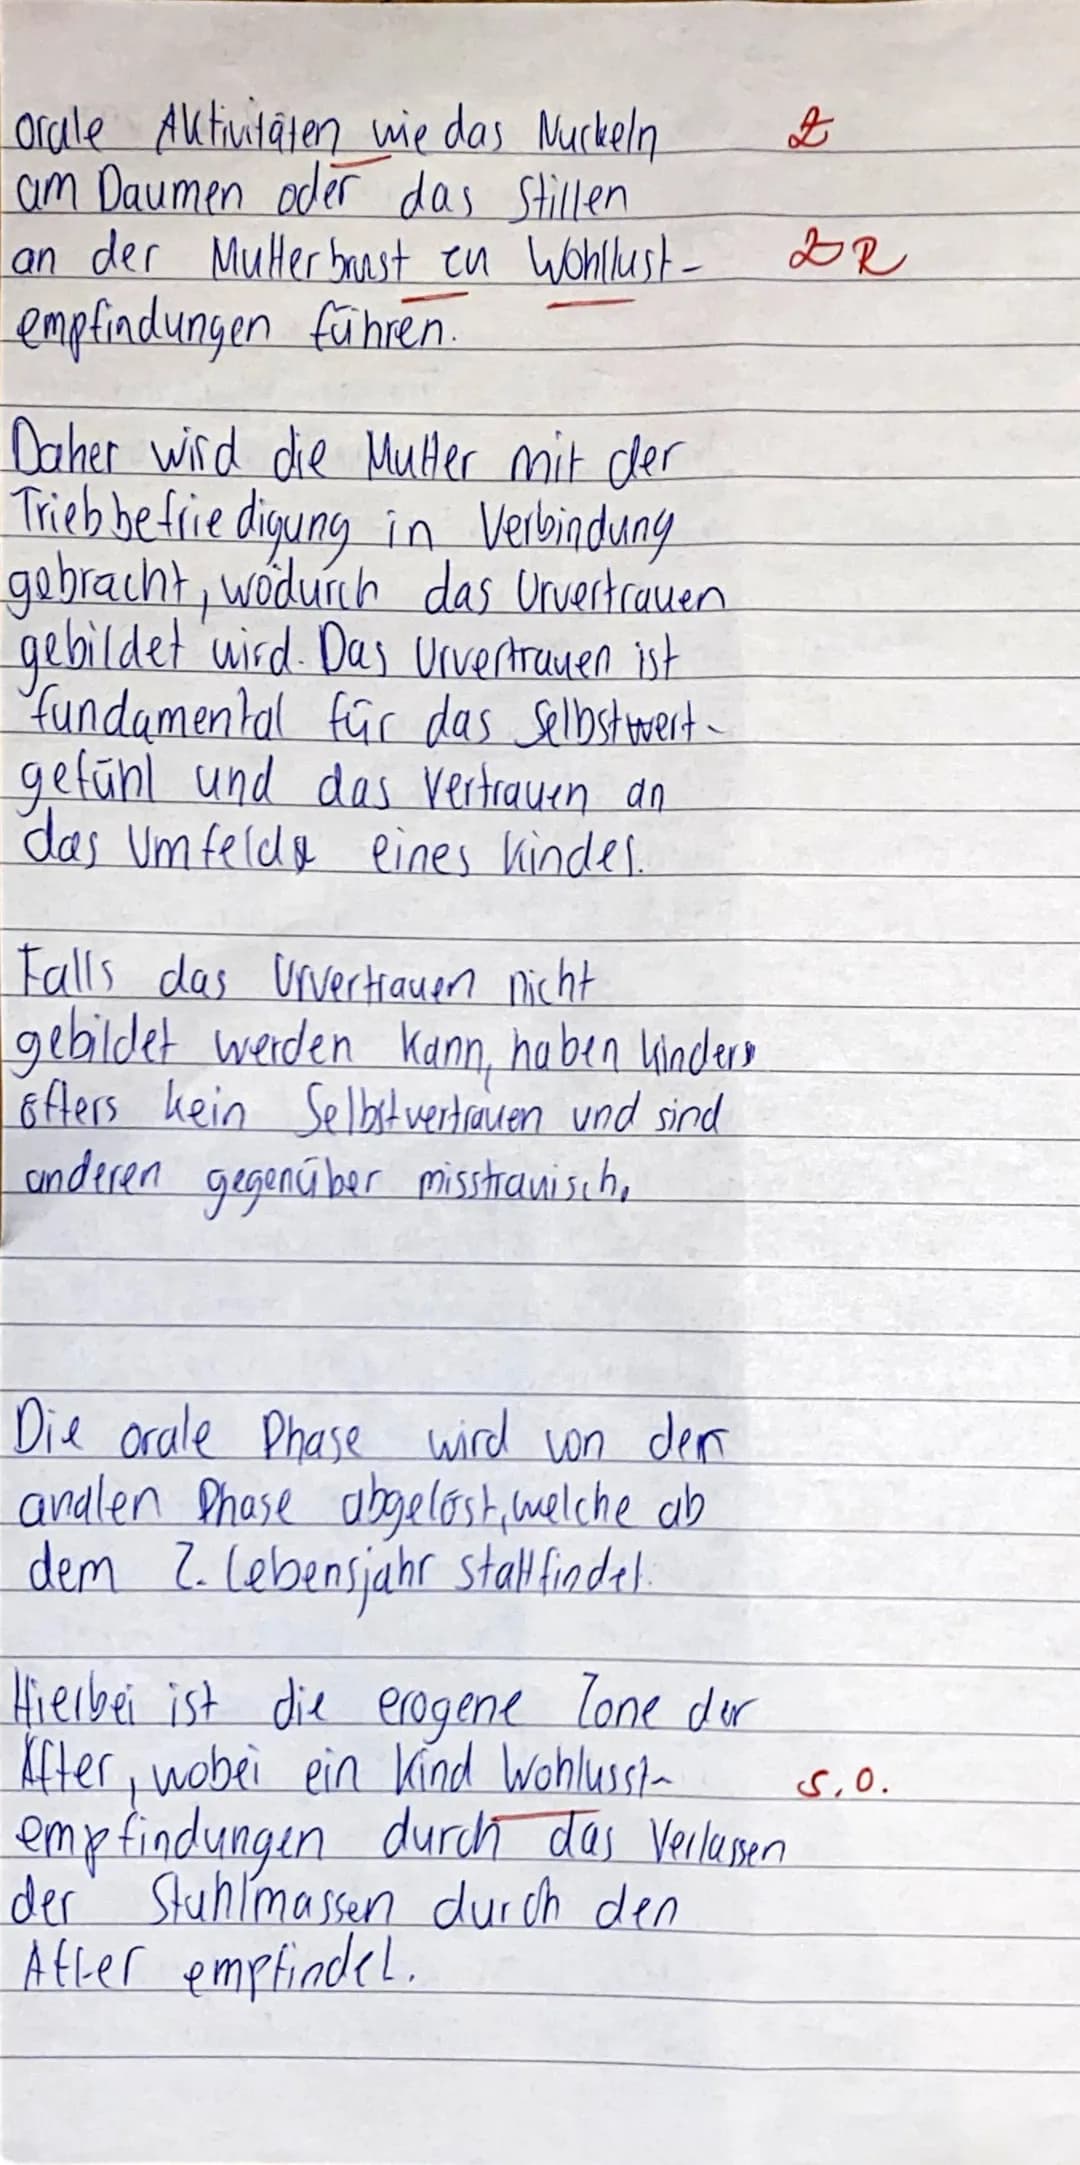 orale Aktivitäten wie das Nuckeln Z
am Daumen oder das Stillen
an der Mutterbrust zu Wohllust- Z R
empfindungen führen.
Daher wird die Mutter mit der
Triebbefriedigung in Verbindung
gebracht, wodurch das Urvertrauen
gebildet wird. Das Urvertrauen ist
fundamental für das Selbstwert-
gefühl und das Vertrauen an
das Umfeld eines Kindes.
Falls das Urvertrauen nicht
gebildet werden kann, haben Kinder
öfters kein Selbstvertrauen und sind
anderen gegenüber misstrauisch.
Die orale Phase wird von der
analen Phase abgelöst, welche ab
dem 2. Lebensjahr stattfindet.
Hierbei ist die erogene Zone der
After, wobei ein Kind Wohlusst- s.o.
empfindungen durch das Verlassen
der Stuhlmassen durch den
After empfindet.